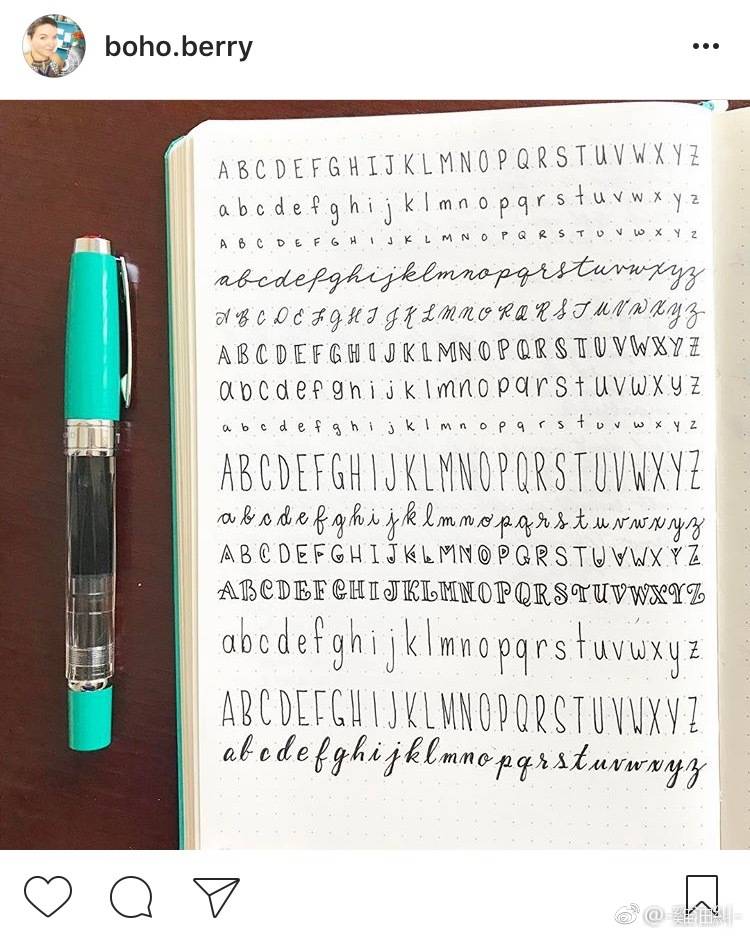 boho.berry
A B C D E F G H I J K L M N O P Q R S T U V W X Y Z
a b c d e f g h i j k l m n o p q r s t u v w x y z
A B C D E F G H I J K L M N O P Q R S T U V W X Y Z
abcdefghijklmnopqrstuvwxyz
A B C D E F G H I J K L M N O P Q R S T U V W X Y Z
A B C D E F G H I J K L M N O P Q R S T U V W X Y Z
a b c d e f g h i j k l m n o p q r s t u v w x y z
a b c d e f g h i j k l m n o p q r s t u v w x y z
A B C D E F G H I J K L M N O P Q R S T U V W X Y Z
a b c d e f g h i j k l m n o p q r s t u v w x y z
A B C D E F G H I J K L M N O P Q R S T U V W X Y Z
A B C D E F G H I J K L M N O P Q R S T U V W X Y Z
a b c d e f g h i j k l m n o p q r s t u v w x y z
A B C D E F G H I J K L M N O P Q R S T U V W X Y Z
a b c d e f g h i j k l m n o p q r s t u v w x y z